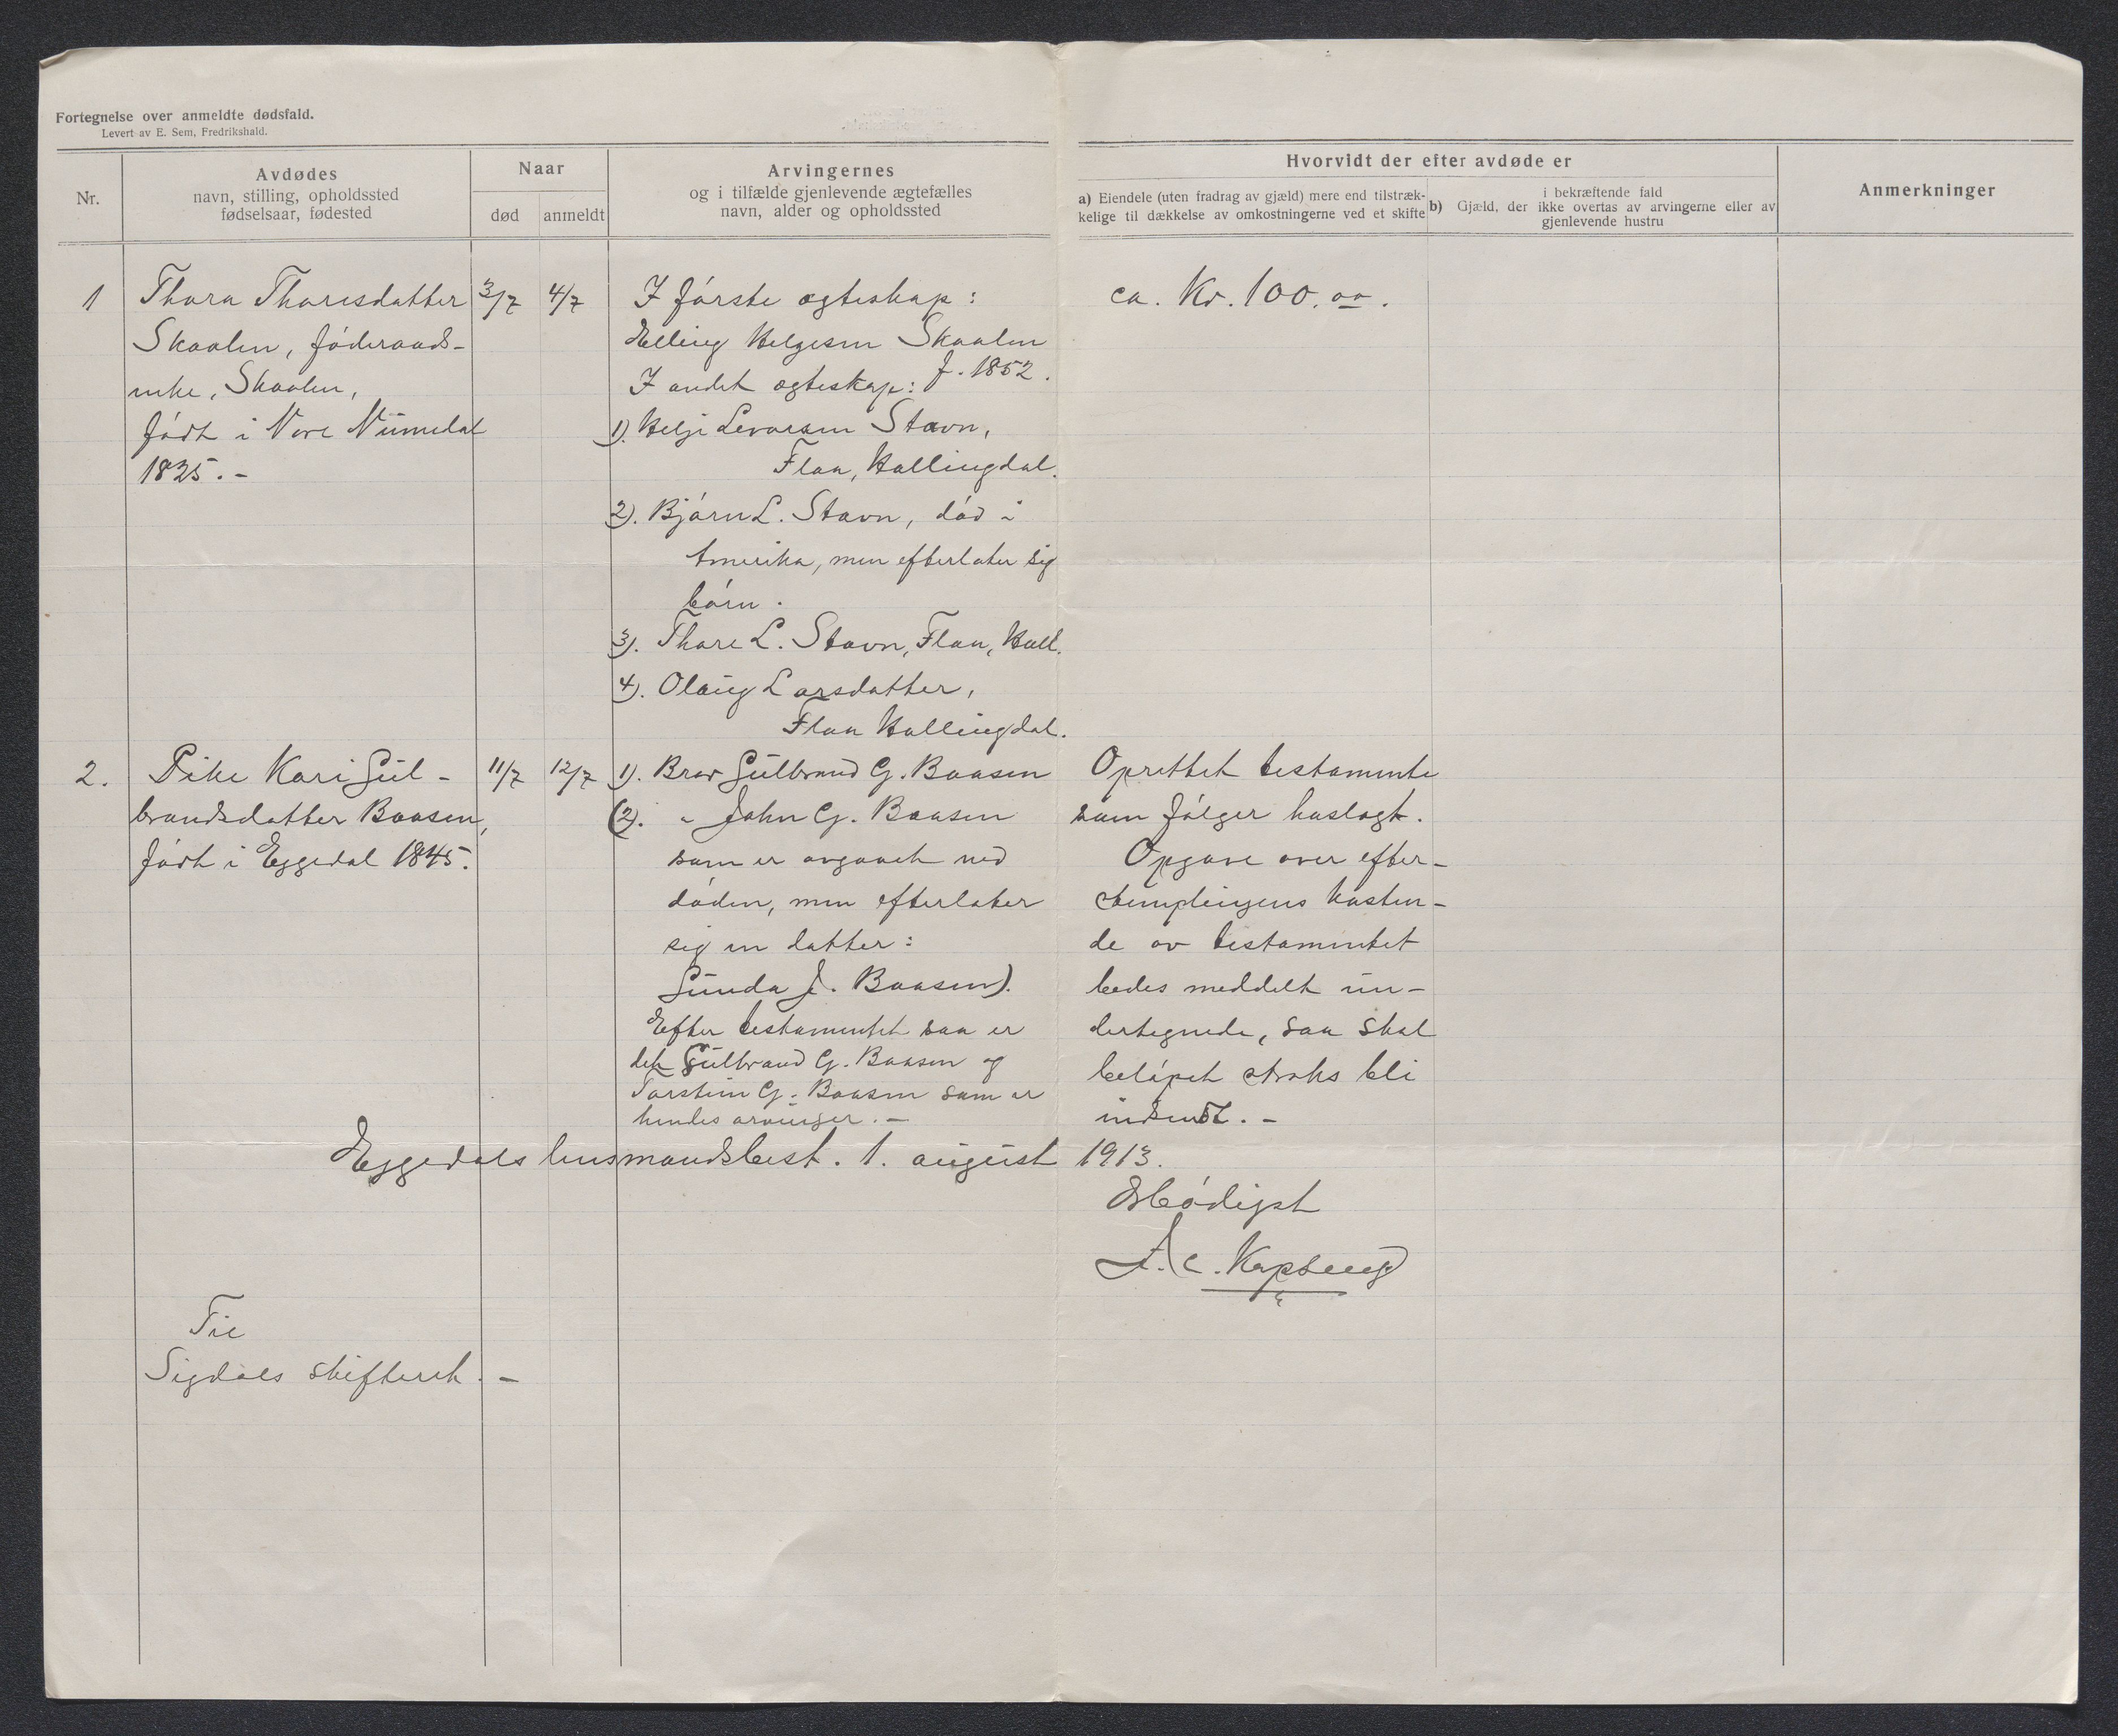 Fortegnelse over anmeldte dødsfald.
Levert av E. Sem, Fredrikshald.
Nr.
Avdødes
navn, stilling, opholdssted
fødselsaar, fødested
Naar
død
anmeldt
Arvingernes
og i tilfælde gjenlevende ægtefælles
navn, alder og opholdssted
Hvorvidt der efter avdøde er
a) Eiendele (uten fradrag av gjæld) mere end tilstræk-
kelige til dækkelse av omkostningerne ved et skifte
i bekræftende fald
b) Gjæld, der ikke overtas av arvingerne eller av
gjenlevende hustru
Anmerkninger
1
Thora Thoresdatter
Skaalen, föderaads-
enke, Skaalen,
född i Nore Numedal
1825.-
3/7
4/7
I förste egteskap:
Elling Helgesen Skaalen
f. 1852.
I andet egteskap:
1). Helge Levorsen Stavn,
Flaa, Hallingdal.
2). Björn L. Stavn, död i
Amerika, men efterlater sig
börn.
3). Thore L. Stavn, Flaa, Hall.
4). Olaug Larsdatter,
Flaa Hallingdal.
ca. Kr. 100.00.
2.
Pike Kari Gul-
brandsdatter Baasen,
född i Eggedal 1845.
11/7
12/7
1). Bror Gulbrand G. Baasen
(2). " John G. Baasen
som er avgaaet ved
döden, men efterlater
sig en datter:
Gunda J. Baasen).
Efter testamentet saa er
det Gulbrand G. Baasen og
Torstein G. Baasen som er
hendes arvinger.-
Oprettet testamente
som fölger hoslagt.
Opgave over efter-
stemplingens kosten-
de av testamentet
bedes meddelt un-
dertegnede, saa skal
belöpet straks bli
indsendt.-
Eggedals lensmandsbest. 1. august 1913.
Ærbödigst
A. C. Kopseng
Til
Sigdals skifteret.-